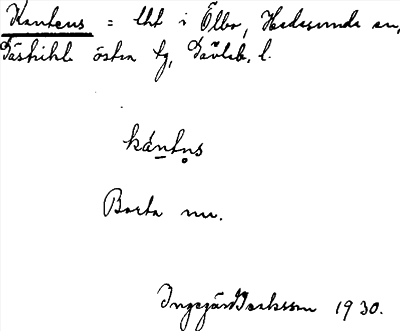 Kantens = lht i Ölbo, Hedesunda sn,
Gästrikl. östra tg, Gävleb. l.
kántns
Borta nu.
Ingegärd Isaksson 1930.